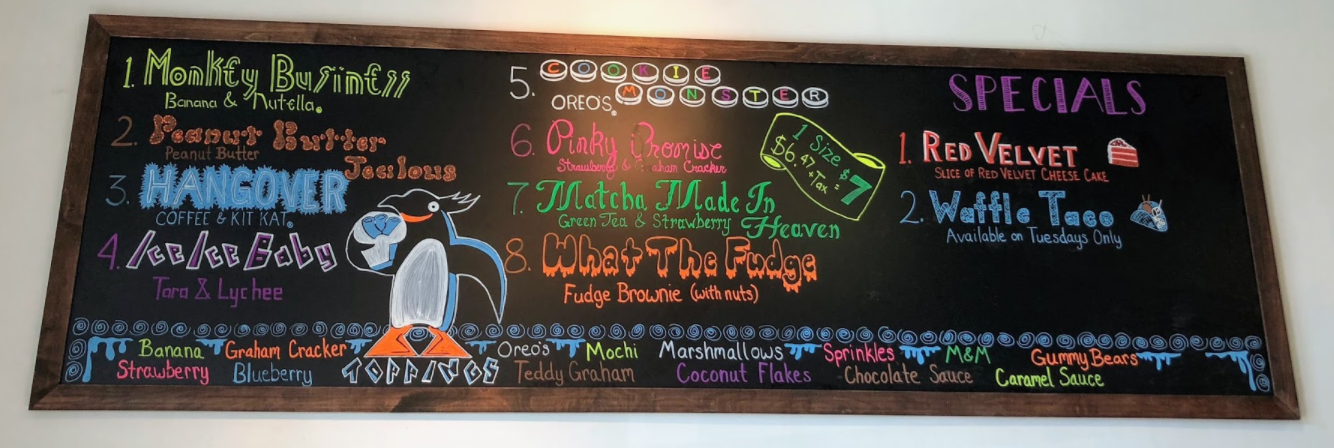 1. Monkey Business
Banana & Nutella.
2. Peanut Butter
Jealous
Peanut Butter
3. HANGOVER
COFFEE & KIT KAT.
4. Ice Ice Baby
Taro & Lychee
5. COOKIE
MONSTER
OREO'S.
6. Pinky Promise
Strawberry & Graham Cracker
7. Matcha Made In
Heaven
Green Tea & Strawberry
8. What The Fudge
Fudge Brownie (with nuts)
1 Size
$6.47
+Tax =
$7
SPECIALS
1. RED VELVET
SLICE OF RED VELVET CHEESE CAKE
2. Waffle Taco
Available on Tuesdays Only
Banana Graham Cracker Oreo's Mochi Marshmallows Sprinkles M&M Gummy Bears
Strawberry Blueberry TOPPINGS Teddy Graham Coconut Flakes Chocolate Sauce Caramel Sauce